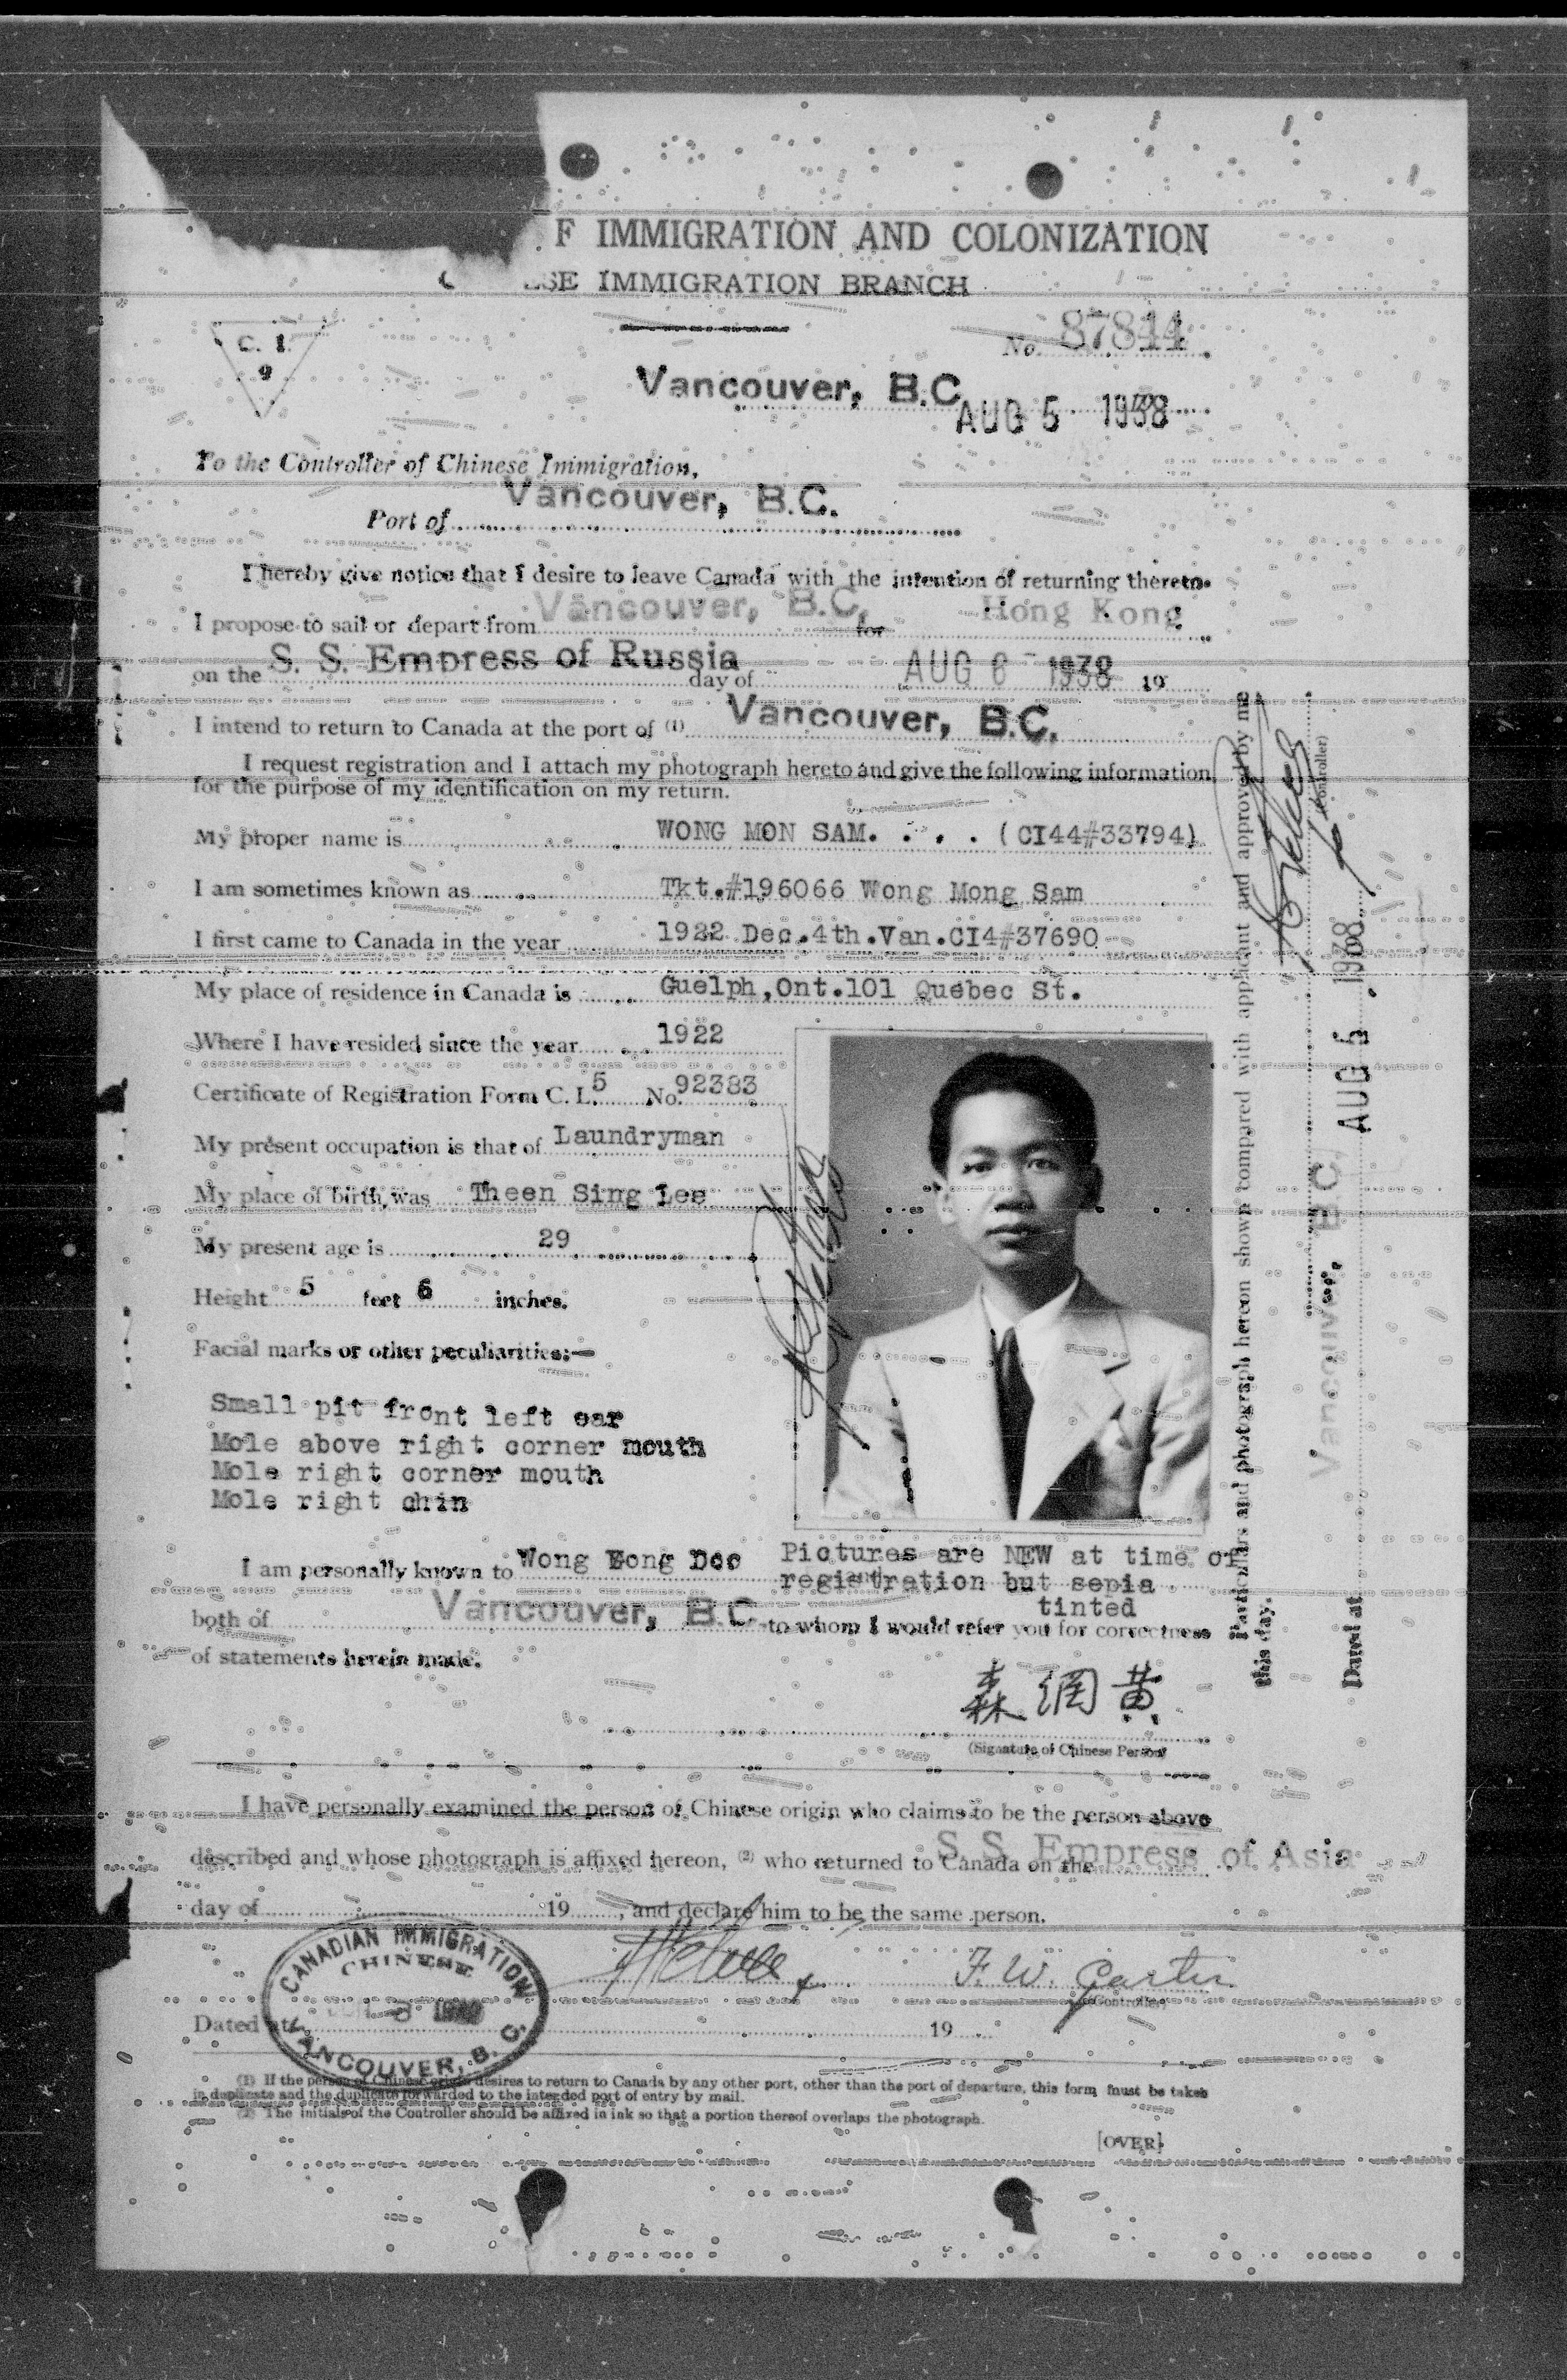 F IMMIGRATION AND COLONIZATION
ESE IMMIGRATION BRANCH
C. I.
9
No. 87844
Vancouver, B.C.
AUG 5 1938
To the Controller of Chinese Immigration,
Port of Vancouver, B.C.
I hereby give notice that I desire to leave Canada with the intention of returning thereto.
I propose to sail or depart from Vancouver, B.C. for Hong Kong
on the S. S. Empress of Russia day of AUG 6 - 1938 19
I intend to return to Canada at the port of (1) Vancouver, B.C.
I request registration and I attach my photograph hereto and give the following information
for the purpose of my identification on my return.
My proper name is WONG MON SAM. . . . (CI44#33794)
I am sometimes known as Tkt.#196066 Wong Mong Sam
I first came to Canada in the year 1922 Dec.4th.Van.CI4#37690
My place of residence in Canada is Guelph,Ont.101 Quebec St.
Where I have resided since the year 1922
Certificate of Registration Form C. I. 5 No. 92383
My present occupation is that of Laundryman
My place of birth was Theen Sing Lee
My present age is 29
Height 5 feet 6 inches.
Facial marks or other peculiarities:—
Small pit front left ear
Mole above right corner mouth
Mole right corner mouth
Mole right chin
I am personally known to Wong
Pictures are NEW at time of
registration but sepia
tinted
and
both of Vancouver, B.C. to whom I would refer you for correctness
of statements herein made.
森綱黄
(Signature of Chinese Person)
I have personally examined the person of Chinese origin who claims to be the person above
described and whose photograph is affixed hereon, (2) who returned to Canada on the S. S. Empress of Asia
day of 19 , and declare him to be the same person.
F. W. Carter
Controller
CANADIAN IMMIGRATION
CHINESE
VANCOUVER, B. C.
Dated at 19
(1) If the person of Chinese origin desires to return to Canada by any other port, other than the port of departure, this form must be taken
in duplicate and the duplicate forwarded to the intended port of entry by mail.
(2) The initials of the Controller should be affixed in ink so that a portion thereof overlaps the photograph.
[OVER]
Particulars and photograph hereon shown compared with applicant and approved by me
this day.
(Controller)
Dated at Vancouver, B C, AUG 5 1938